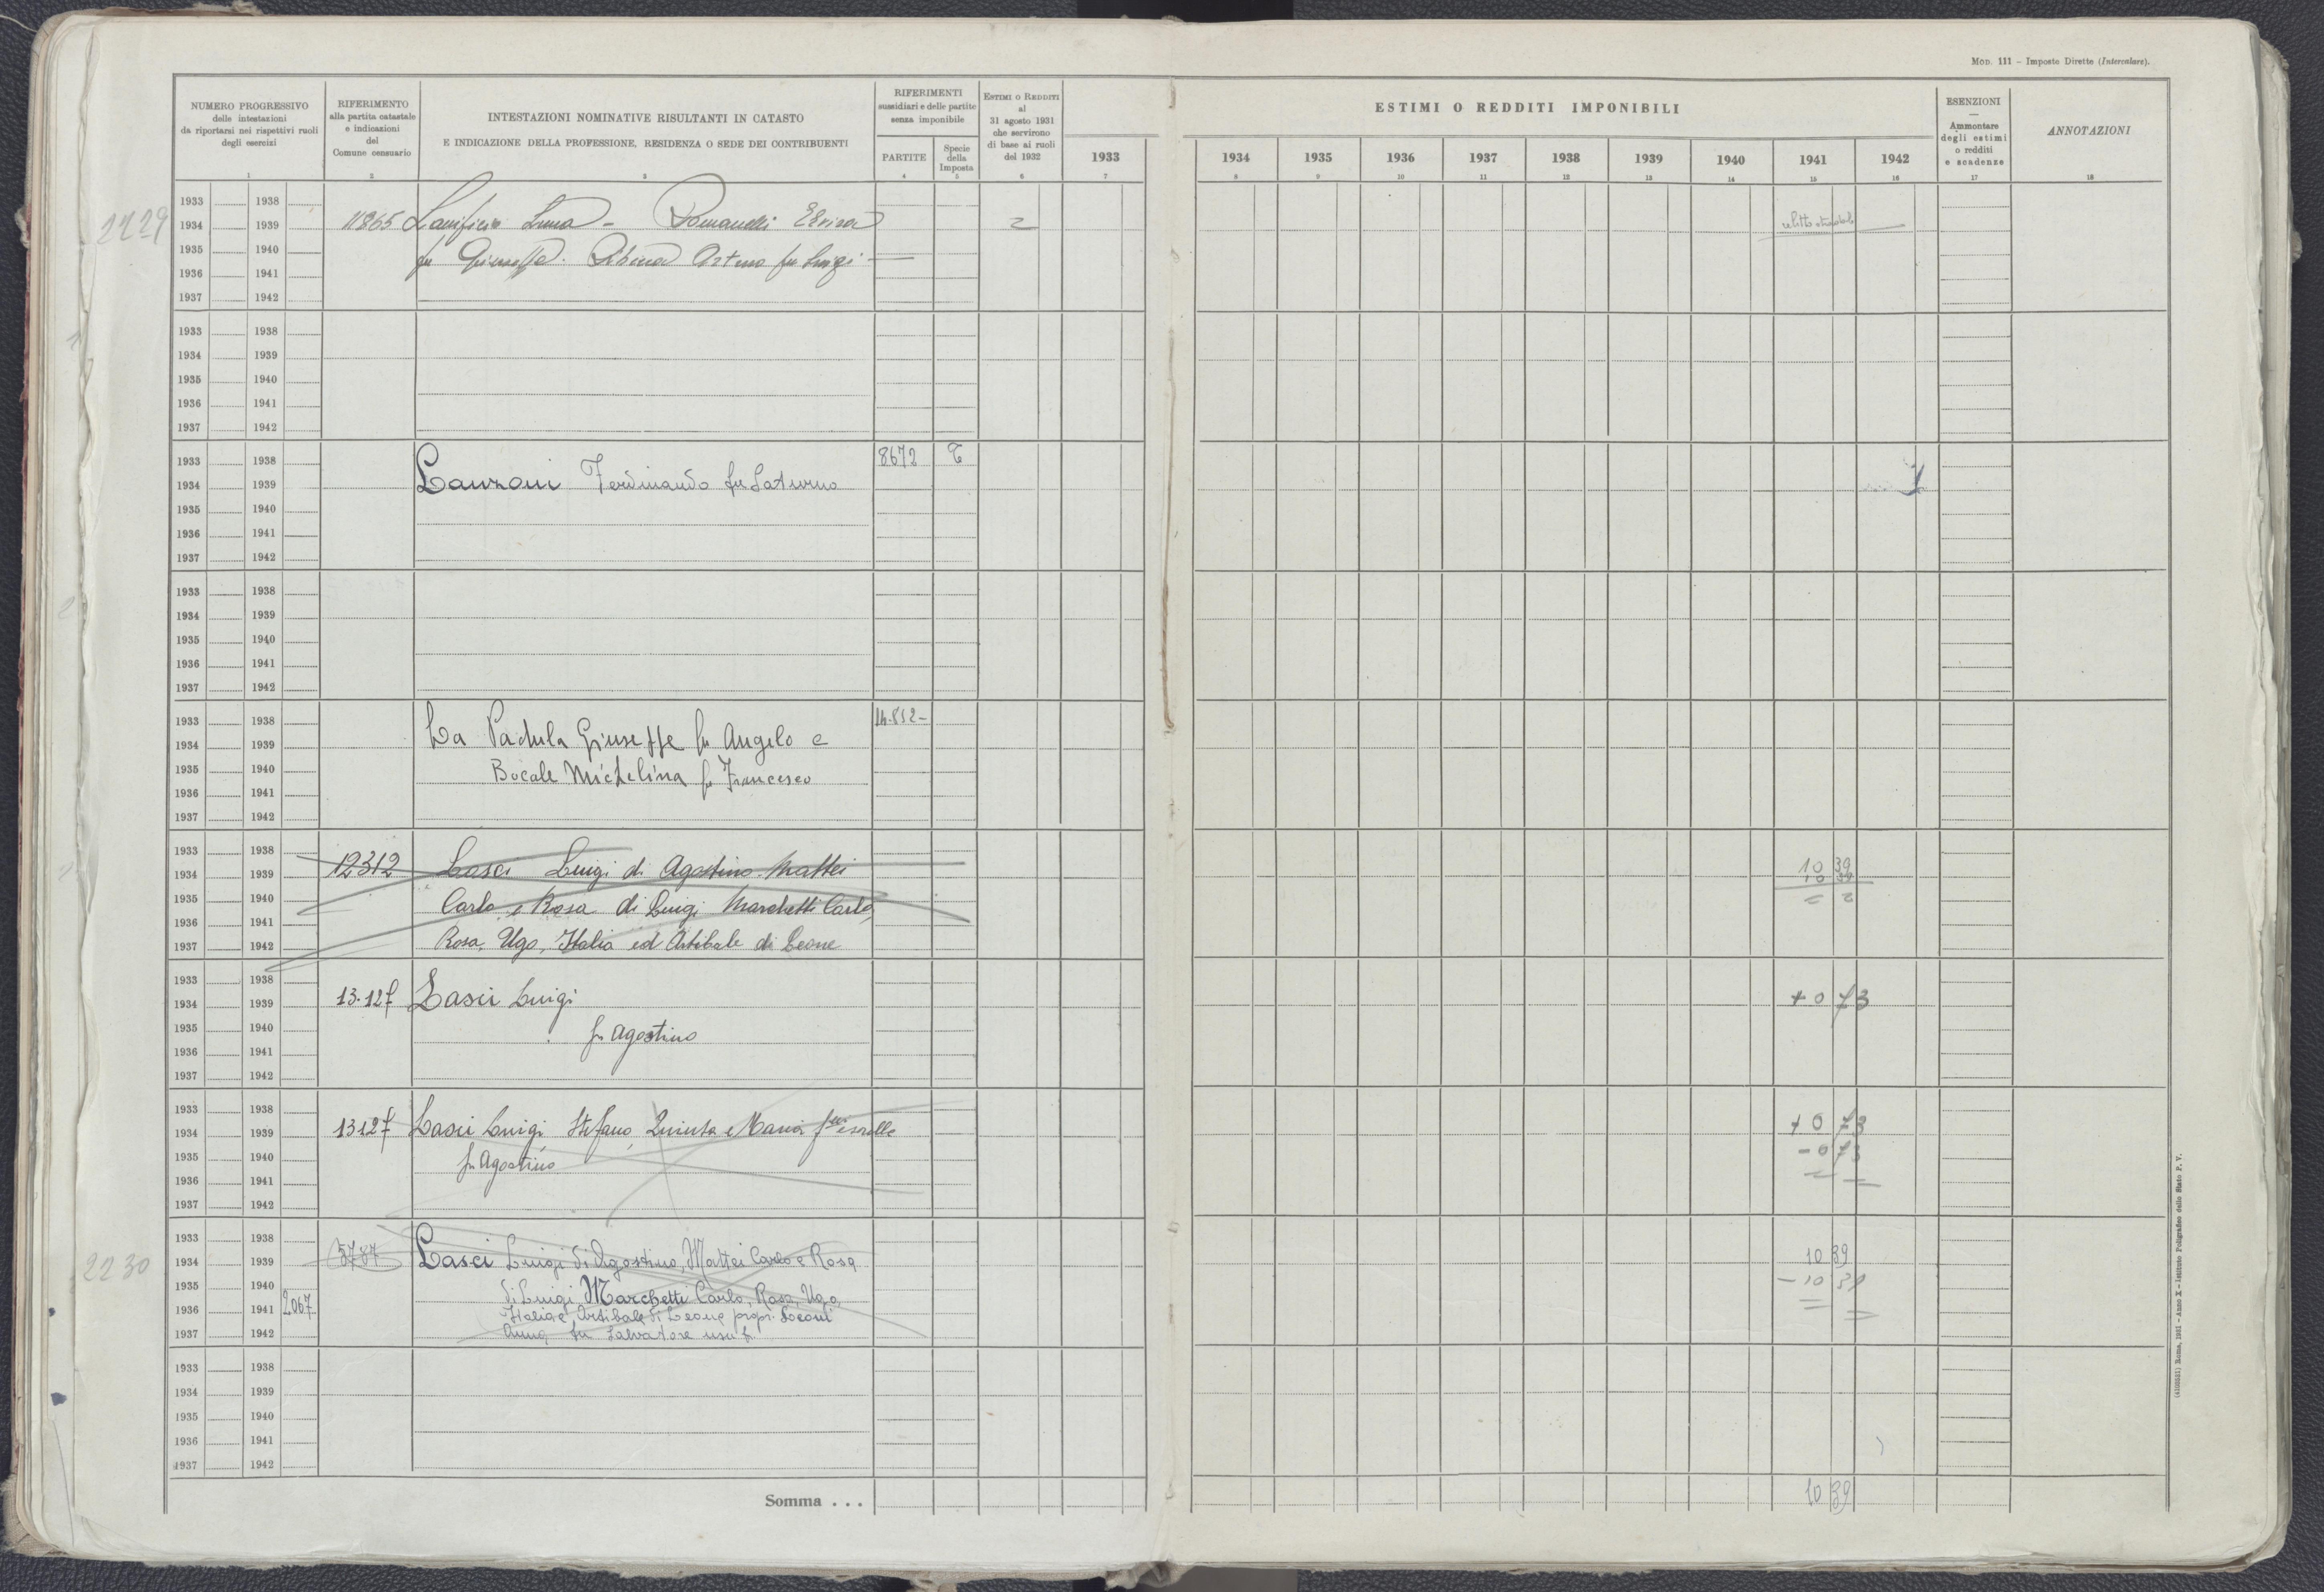 MOD. 111 – Imposte Dirette (Intercalare).
NUMERO PROGRESSIVO
delle intestazioni
da riportarsi nei rispettivi ruoli
degli esercizi
RIFERIMENTO
alla partita catastale
e indicazioni
del
Comune censuario
INTESTAZIONI NOMINATIVE RISULTANTI IN CATASTO
E INDICAZIONE DELLA PROFESSIONE, RESIDENZA O SEDE DEI CONTRIBUENTI
RIFERIMENTI
sussidiari e delle partite
senza imponibile
PARTITE
Specie
della
Imposta
ESTIMI O REDDITI
al
31 agosto 1931
che servirono
di base ai ruoli
del 1932
ESTIMI O REDDITI IMPONIBILI
1933 1934 1935 1936 1937 1938 1939 1940 1941 1942
ESENZIONI
—
Ammontare
degli estimi
o redditi
e scadenze
ANNOTAZIONI
1 2 3 4 5 6 7 8 9 10 11 12 13 14 15 16 17 18
2229
1933 1938
1934 1939 11865 Lanificio Luna - Romanelli Elvira
1935 1940 fu Giuseppe. Artuso fu Luigi
1936 1941
1937 1942
1933 1938
1934 1939
1935 1940
1936 1941
1937 1942
1933 1938 8672 T
1934 1939 Lanzoni Ferdinando fu Saturno
1935 1940
1936 1941
1937 1942
1933 1938
1934 1939
1935 1940
1936 1941
1937 1942
1933 1938 14.852-
1934 1939 La Padula Giuseppe fu Angelo e
1935 1940 Bocale Michelina fu Francesco
1936 1941
1937 1942
1933 1938
1934 1939 12312 Lasci Luigi di Agostino. Mattei 10 39
1935 1940 Carlo e Rosa di Luigi Marchetti Carlo, 10 39
1936 1941
1937 1942 Rosa, Ugo, Italia ed Artibale di Leone
1933 1938
1934 1939 13.127 Lasci Luigi + 0 73
1935 1940 fu Agostino
1936 1941
1937 1942
1933 1938
1934 1939 13127 Lasci Luigi Stefano, Quinta e Maria f.lli e sorelle + 0 73
1935 1940 fu Agostino - 0 73
1936 1941
1937 1942
1933 1938
2230 1934 1939 3787 Lasci Luigi di Agostino, Mattei Carlo e Rosa 10 39
1935 1940 di Luigi Marchetti Carlo, Rosa, Ugo, - 10 39
1936 1941 2067 Italia e Artibale di Leone propr.
1937 1942 Anna fu Salvatore usuf.
1933 1938
1934 1939
1935 1940
1936 1941
1937 1942
Somma . . . 10 39
(4100881) Roma, 1931 – Anno X – Istituto Poligrafico dello Stato P. V.